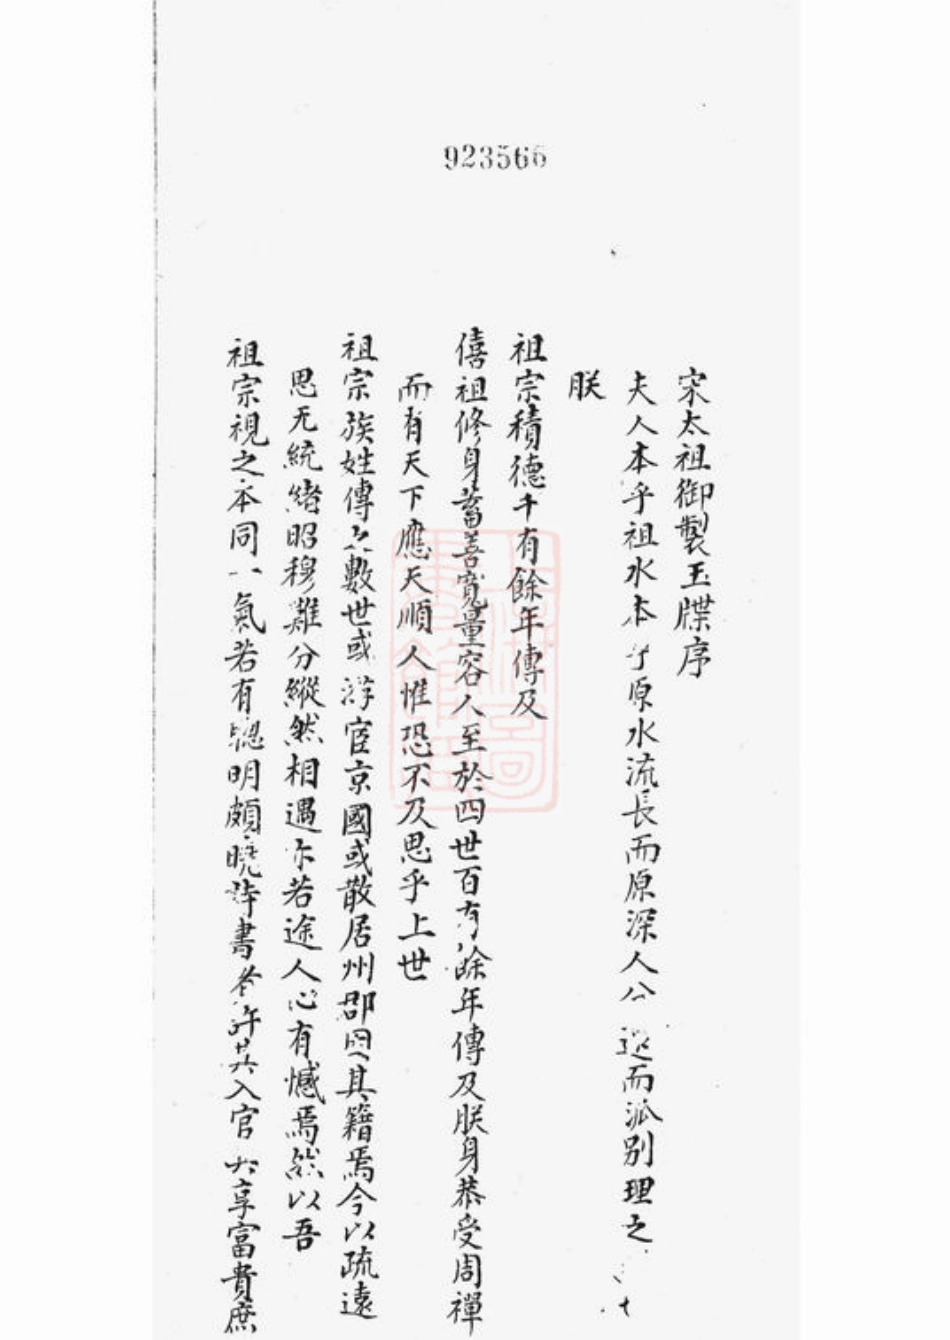 923566
宋太祖御製玉牒序
夫人本乎祖水本乎原水流長而原深人分遠而派别理之
朕
祖宗積德千有餘年傳及
僖祖修身蓄善寬量容人至於四世百有餘年傳及朕身恭受周禪
而有天下應天順人惟恐不及思乎上世
祖宗族姓傳之數世或游宦京國或散居州郡因其籍焉今以疏遠
思无統緒昭穆難分縱然相遇亦若途人心有憾焉然以吾
祖宗視之本同一氣若有聰明頗曉詩書者許其入官共享富貴庶